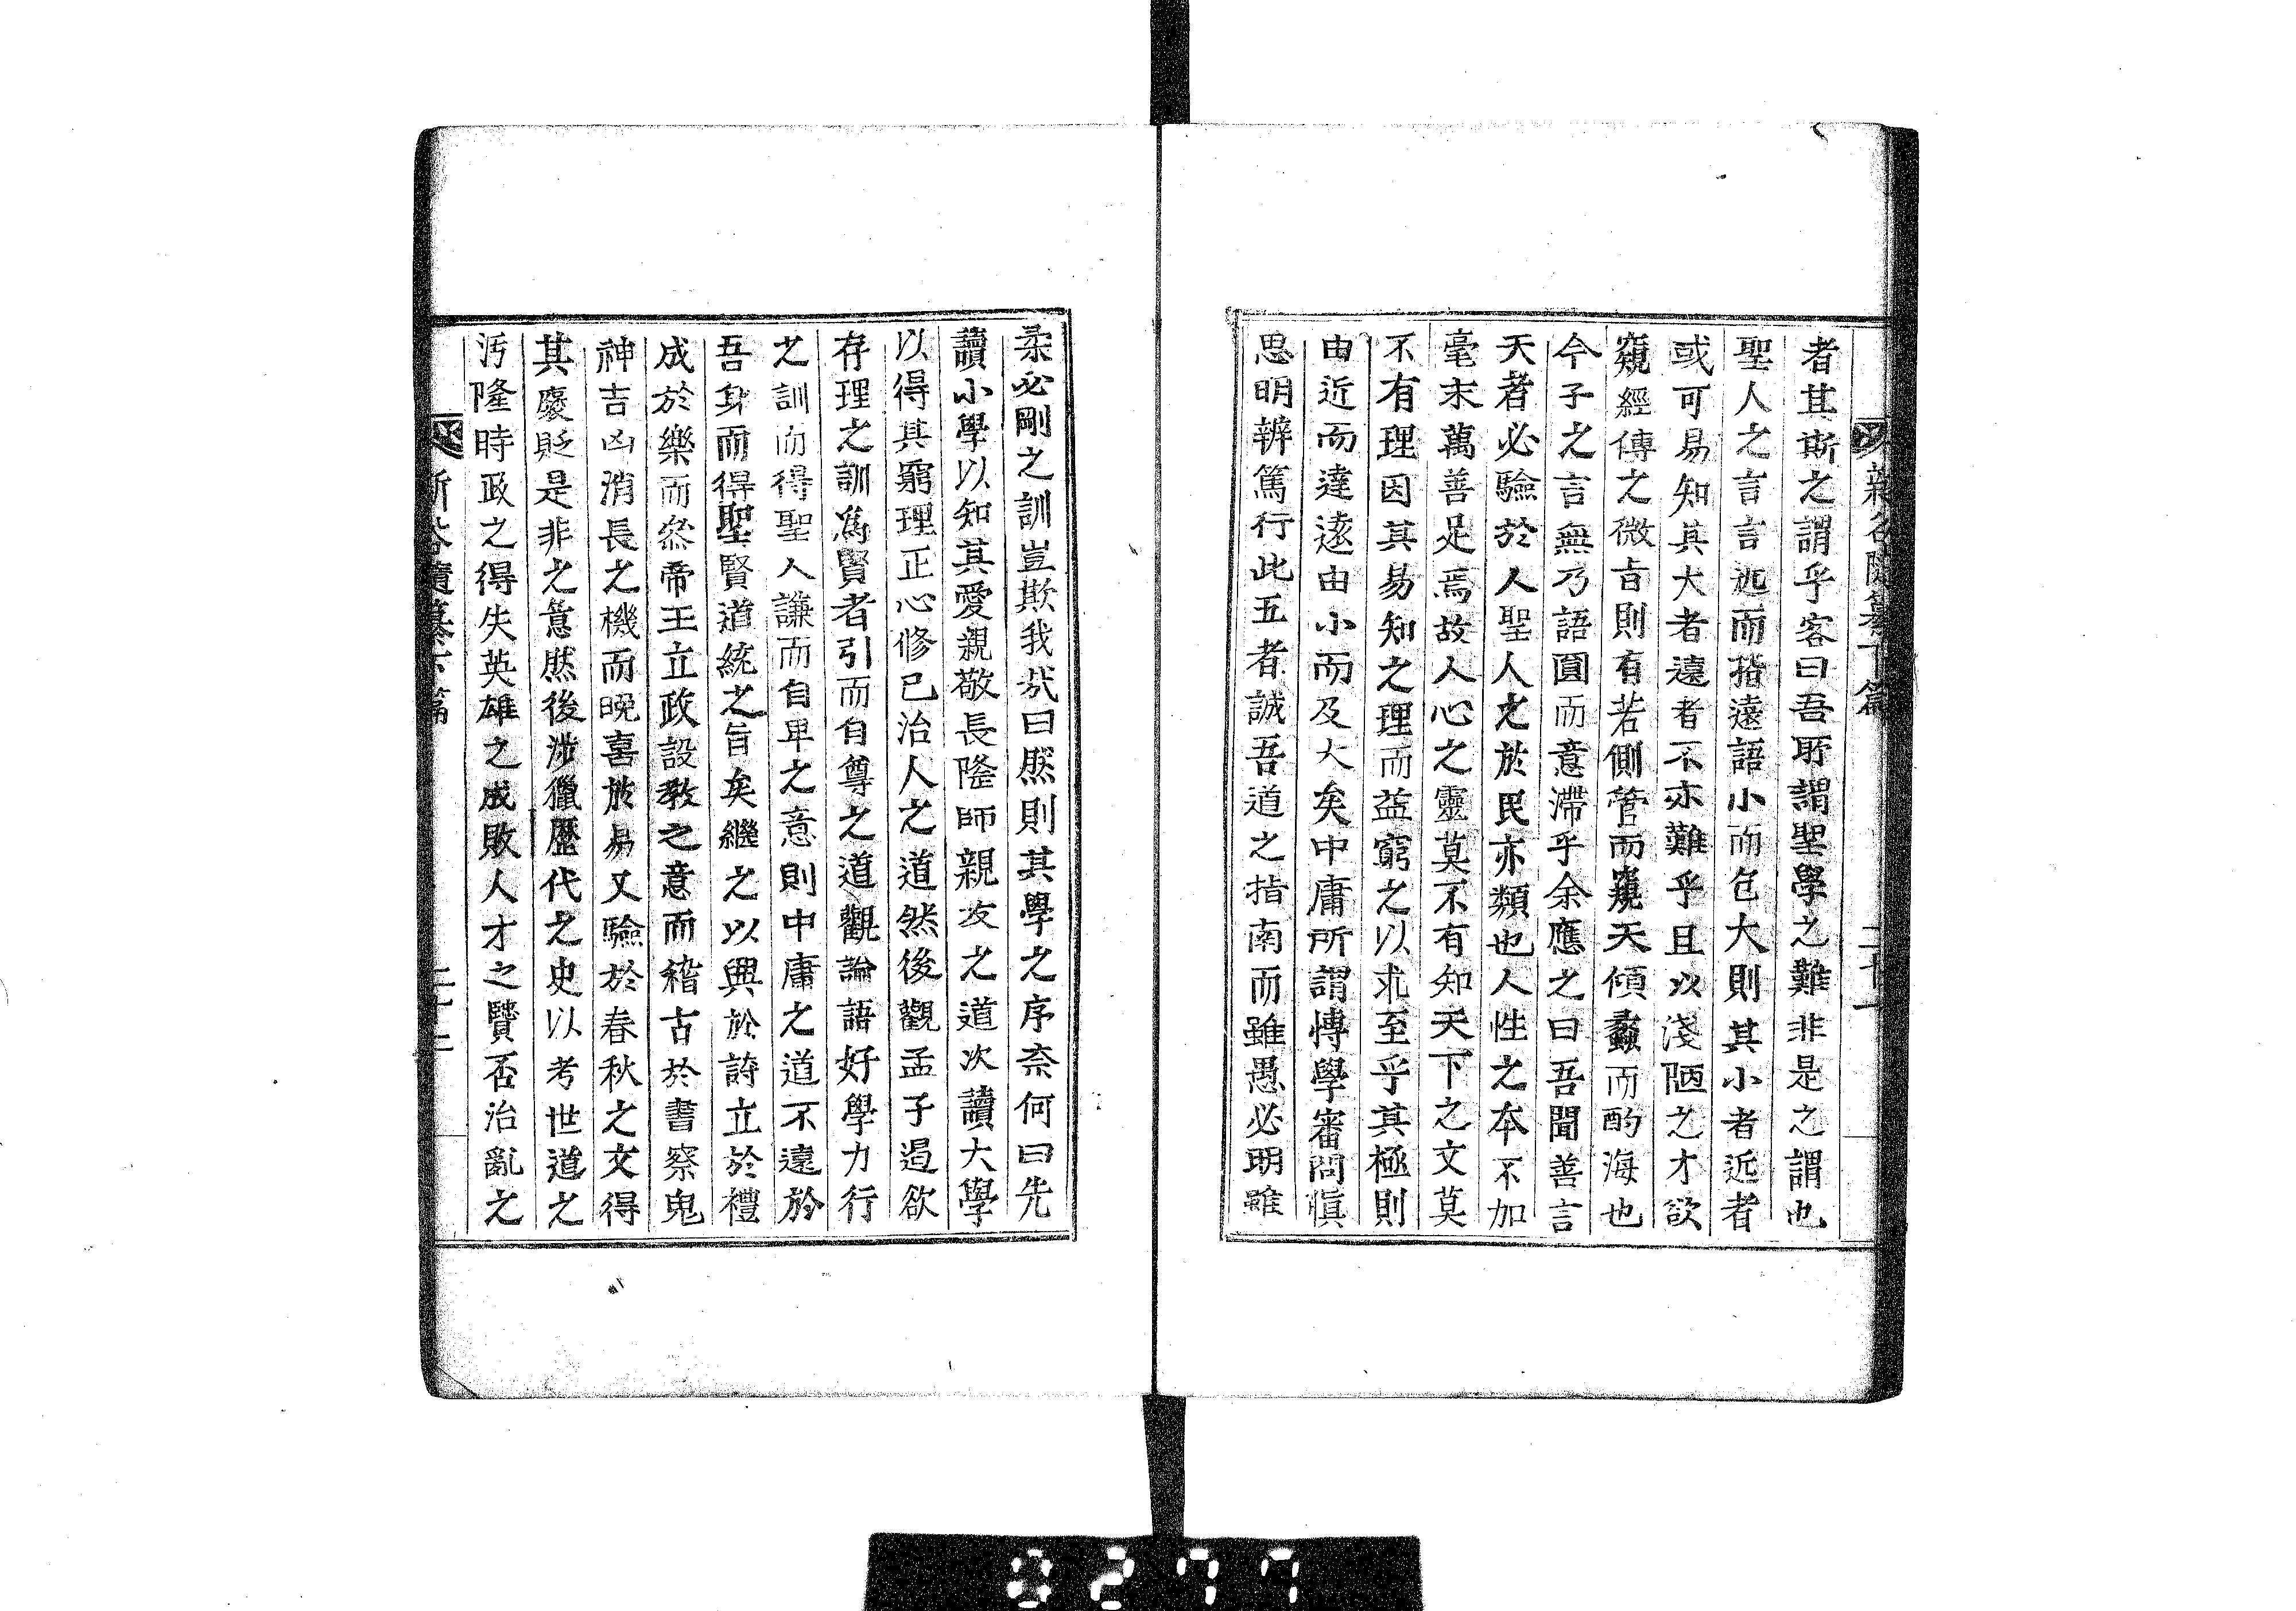 者其斯之謂乎客曰吾所謂聖學之難非是之謂也
聖人之言言近而指遠語小而包大則其小者近者
或可易知其大者遠者不亦難乎且以淺陋之才欲
窺經傳之微旨則有若側管而窺天傾蠡而酌海也
今子之言無乃語圓而意滯乎余應之曰吾聞善言
天者必驗於人聖人之於民亦類也人性之本不加
毫末萬善足焉故人心之靈莫不有知天下之文莫
不有理因其易知之理而益窮之以求至乎其極則
由近而達遠由小而及大矣中庸所謂博學審問慎
思明辨篤行此五者誠吾道之指南而雖愚必明雖
柔必剛之訓豈欺我哉曰然則其學之序奈何曰先
讀小學以知其愛親敬長隆師親友之道次讀大學
以得其窮理正心修己治人之道然後觀孟子遏欲
存理之訓爲賢者引而自尊之道觀論語好學力行
之訓而得聖人謙而自卑之意則中庸之道不遠於
吾身而得聖賢道統之旨矣繼之以興於詩立於禮
成於樂而叅帝王立政設教之意而稽古於書察鬼
神吉凶消長之機而晚喜於易又驗於春秋之文得
其褒貶是非之意然後涉獵歷代之史以考世道之
汚隆時政之得失英雄之成敗人才之賢否治亂之
0277